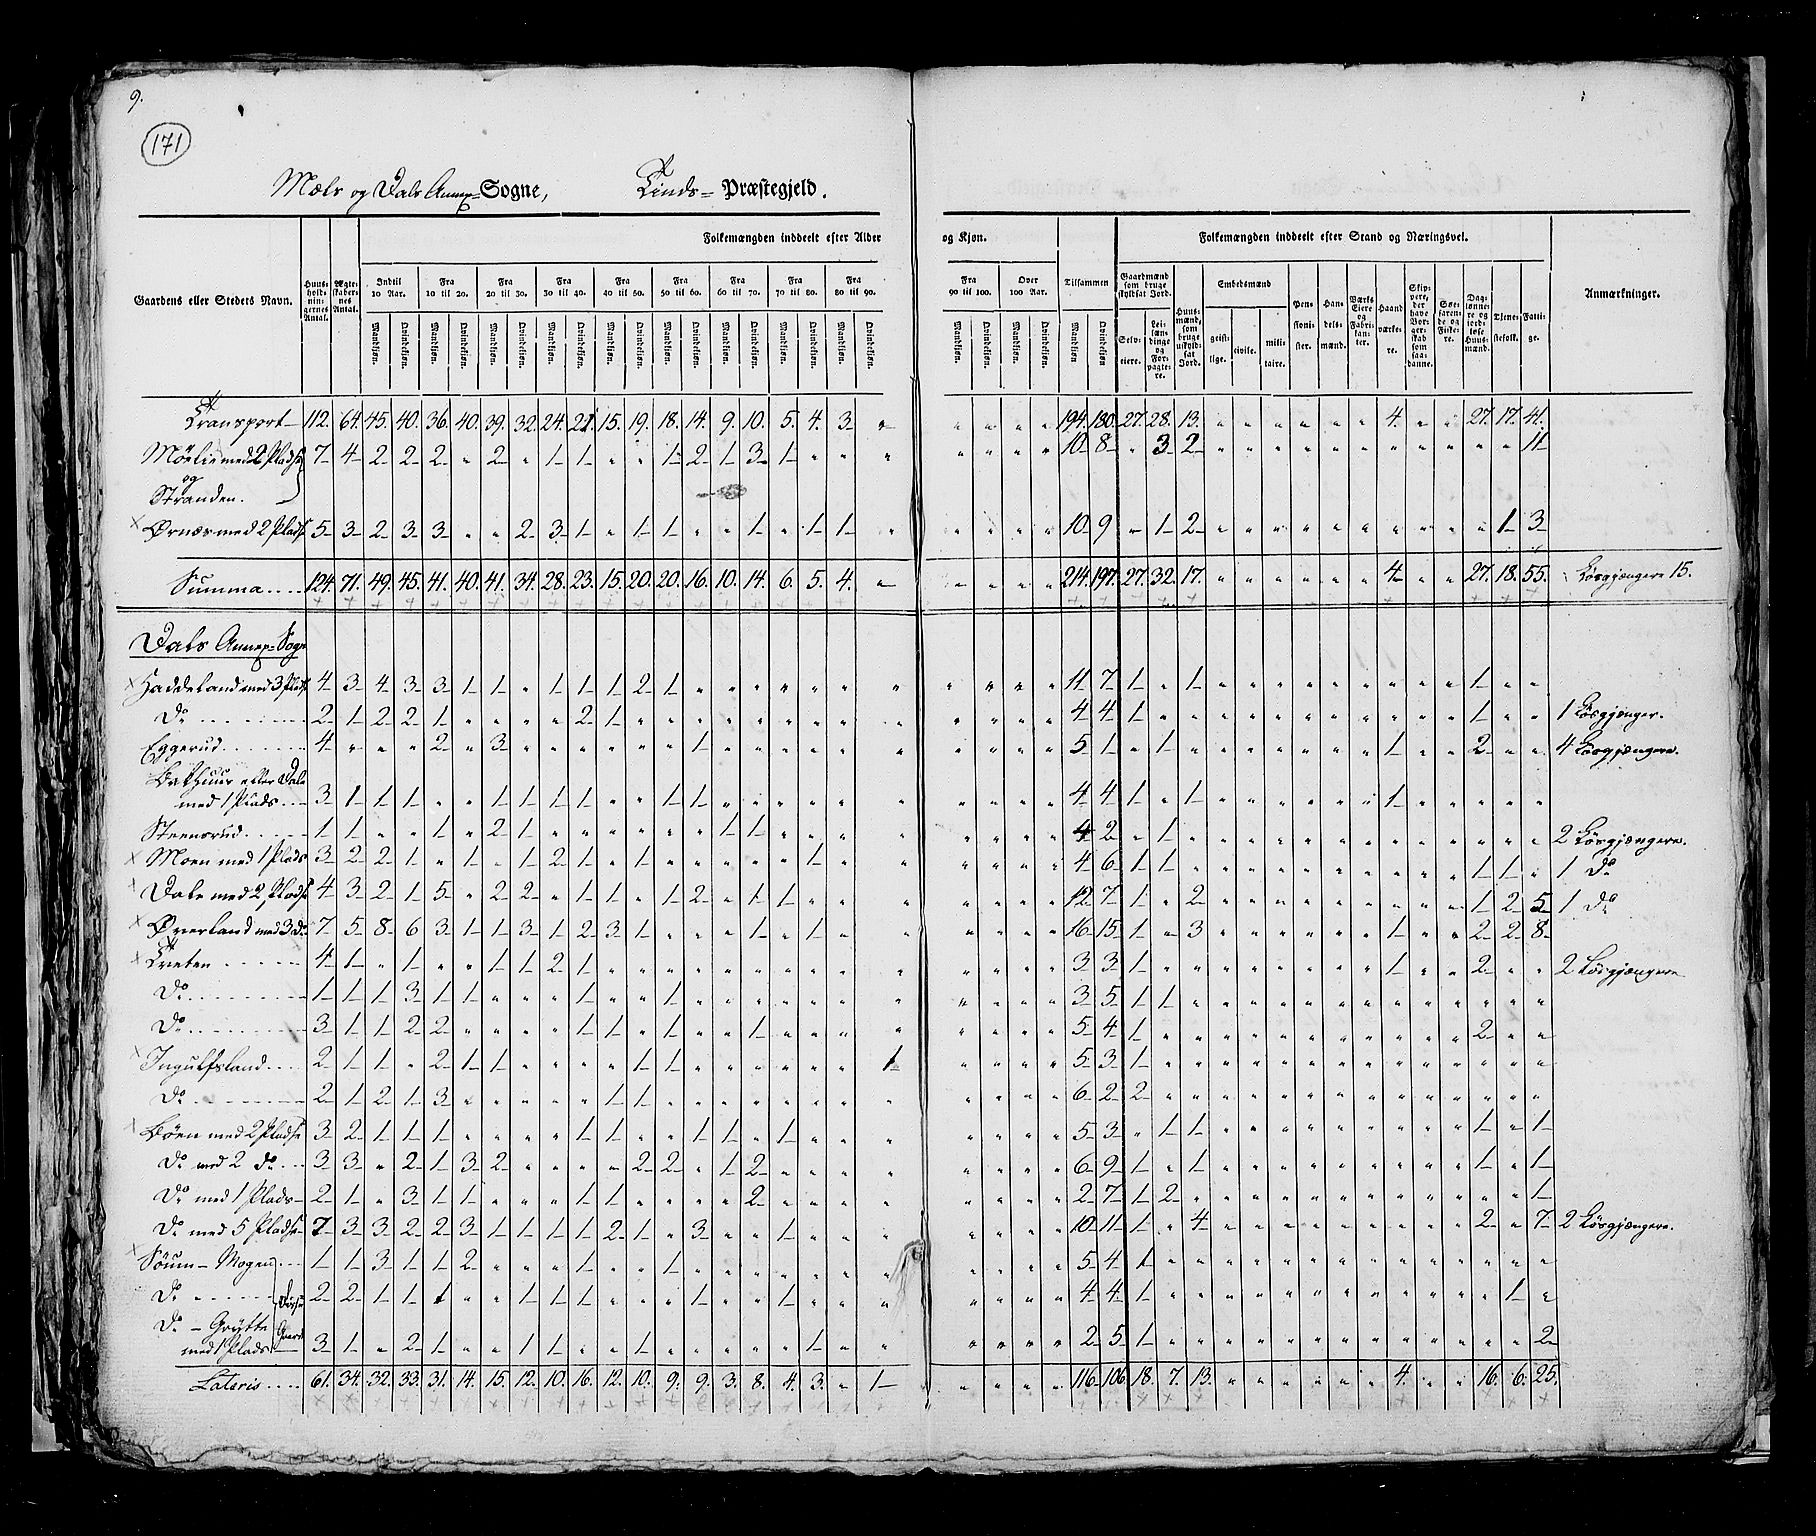 9.
171
Mæls og Dals Annex=Sogne, Tinds= Præstegjeld.
Gaardens eller Stedets Navn.
Huus-holdnin-gernes Antal.
Ægte-skaber-nes Antal.
Folkemængden inddeelt efter Alder og Kjøn.
Indtil 10 Aar. Fra 10 til 20. Fra 20 til 30. Fra 30 til 40. Fra 40 til 50. Fra 50 til 60. Fra 60 til 70. Fra 70 til 80. Fra 80 til 90. Fra 90 til 100. Over 100 Aar. Tilsammen
Mandkiøn. Qvindekiøn. Mandkiøn. Qvindekiøn. Mandkiøn. Qvindekiøn. Mandkiøn. Qvindekiøn. Mandkiøn. Qvindekiøn. Mandkiøn. Qvindekiøn. Mandkiøn. Qvindekiøn. Mandkiøn. Qvindekiøn. Mandkiøn. Qvindekiøn. Mandkiøn. Qvindekiøn. Mandkiøn. Qvindekiøn. Mandkiøn. Qvindekiøn
Folkemængden inddeelt efter Stand og Næringsvei.
Gaardmænd som bruge skyldsat Jord.
Selv-eiere.
Lei-læn-dinge og For-pagte-re.
Huus-mænd, som bruge uskyld-sat Jord.
Embedsmænd
geist-lige. civile. mili-taire.
Pen-sioni-ster.
Han-dels-mænd.
Værks Eiere og Fabri-kan-ter.
Haand værke-re.
Skip-pere, der have Bor-ger-skab som saa-danne.
Søe-faren-de og Fiske-re.
Dag-lønne-re og jord-løse Huus-mænd.
Tjene-stefolk.
Fatti-ge.
Anmærkninger.
Transport 112. 64. 45. 40. 36. 40. 39. 32. 24. 21. 15. 19. 18. 14. 9. 10. 5. 4. 3. " " " " " 194. 180. 27. 28. 13. " " " " " " 4. " " 27. 17. 41.
Møelie med 2 Pladse 7 4 2 2 2 " 2 " 1 1 " " 1 2 1 3 1 " " " " " " " 10 8 " 3 2 " " " " " " " " " " " 11
og
Stranden.
Ørnæs med 2 Pladse 5 3 2 3 3 " " 2 3 1 " 1 1 " " 1 " 1 1 " " " " " 10 9 " 1 2 " " " " " " " " " " 1 3
Summa 124. 71. 49. 45. 41. 40. 41. 34. 28. 23. 15. 20. 20. 16. 10. 14. 6. 5. 4. " " " " " 214. 197. 27. 32. 17. " " " " " " 4 " " 27. 18. 55. Løsgjængere 15.
Dals Annex=Sogn
Haddeland med 3 Pladse 4 3 4 3 3 1 1 " 1 1 1 2 1 " " " " " " " " " " " 11 7 1 " 1 " " " " " " " " " 1 " "
Do 2 1 2 2 1 " " " " 2 1 " " " " " " " " " " " " " 4 4 1 " " " " " " " " " " " 1 " " 1 Løsgjænger.
Eggerud 4 " " " 2 " 3 " " " " " " 1 " " " " " " " " " " 5 1 " 1 " " " " " " " 1 " " 2 " " 4 Løsgjængere.
eller Dale
med 1 Plads 3 1 1 1 " " 1 1 1 1 " " 1 1 " " " " " " " " " " 4 4 1 " 1 " " " " " " 1 " " " " "
Steensrud 1 1 " " 1 " 2 1 " " " " " " 1 1 " " " " " " " " 4 2 " 1 " " " " " " " " " " " " " 2 Løsgjængere.
Moen med 1 Plads 3 2 2 1 " 1 " 1 2 1 " 1 " " " " " 1 " " " " " " 4 6 1 1 " " " " " " " " " " 1 1 " 1 Do
Dale med 2 Pladse 4 3 2 1 5 " 2 2 " 1 1 " 1 2 " 1 1 " " " " " " " 12 7 1 " 2 " " " " " " " " " 1 2 5 1 Do
Øverland med 3 do 7 5 8 6 3 1 1 3 1 2 3 1 " " " 1 " 1 " " " " " " 16 15 1 " 3 " " " " " " 1 " " 2 2 8
Tveten 4 1 " 1 " " 1 1 2 1 " " " " " " " " " " " " " " 3 3 1 " " " " " " " " 1 " " 2 " " 2 Løsgjængere
Do 1 1 1 3 1 1 " " " 1 " " 1 " " " " " " " " " " " 3 5 1 1 " " " " " " " " " " " " "
Do 3 1 1 2 2 " " " " 1 1 " 1 " " 1 " " " " " " " " 5 4 1 " " " " " " " " " " " 2 " "
Ingulfsland 2 1 1 " 2 1 1 " " " " 1 1 " " " " " " 1 " " " " 5 3 1 " " " " " " " " " " " " " "
Do 2 1 2 1 3 " " " " " 1 1 " " " " " " " " " " " " 6 2 2 " " " " " " " " " " " " " "
Bøen med 2 Pladse 3 2 1 1 1 " " " " 1 1 " " 1 1 " 1 " " " " " " " 5 3 " 1 1 " " " " " " " " " 1 " 1
Do med 2 do 3 3 " 2 1 3 2 " " " " 2 2 " 1 2 " " " " " " " " 6 9 1 " 1 " " " " " " " " " 1 " 1
Do med 1 Plads 2 1 " 3 1 1 " " " 1 1 " " " " 2 " " " " " " " " 2 7 1 2 " " " " " " " " " " " " 1
Do med 5 Pladse 7 3 3 2 2 3 1 1 1 1 2 1 " 3 " " 1 " " " " " " " 10 11 1 " 4 " " " " " " " " " 2 " 7 2 Løsgjængere.
Søum – Mogen 1 1 3 1 1 2 " " " 1 " " 1 " " " " " " " " " " " 5 4 1 " " " " " " " " " " " " " "
Do 2 2 1 1 1 " " 1 1 1 " " " 1 " " 1 " " " " " " " 4 4 1 " " " " " " " " " " " " 1 "
Do – Grytte
med 1 Plads 3 1 " 2 1 " " 1 1 " " 1 " " " " " 1 " " " " " " 2 5 1 " " " " " " " " " " " " " 2
Lateris 61. 34. 32. 33. 31. 14. 15. 12. 10. 16. 12. 10. 9. 9. 3. 8. 4. 3. " 1 " " " " 116. 106. 18. 7. 13. " " " " " " 4. " " 16. 6. 25.